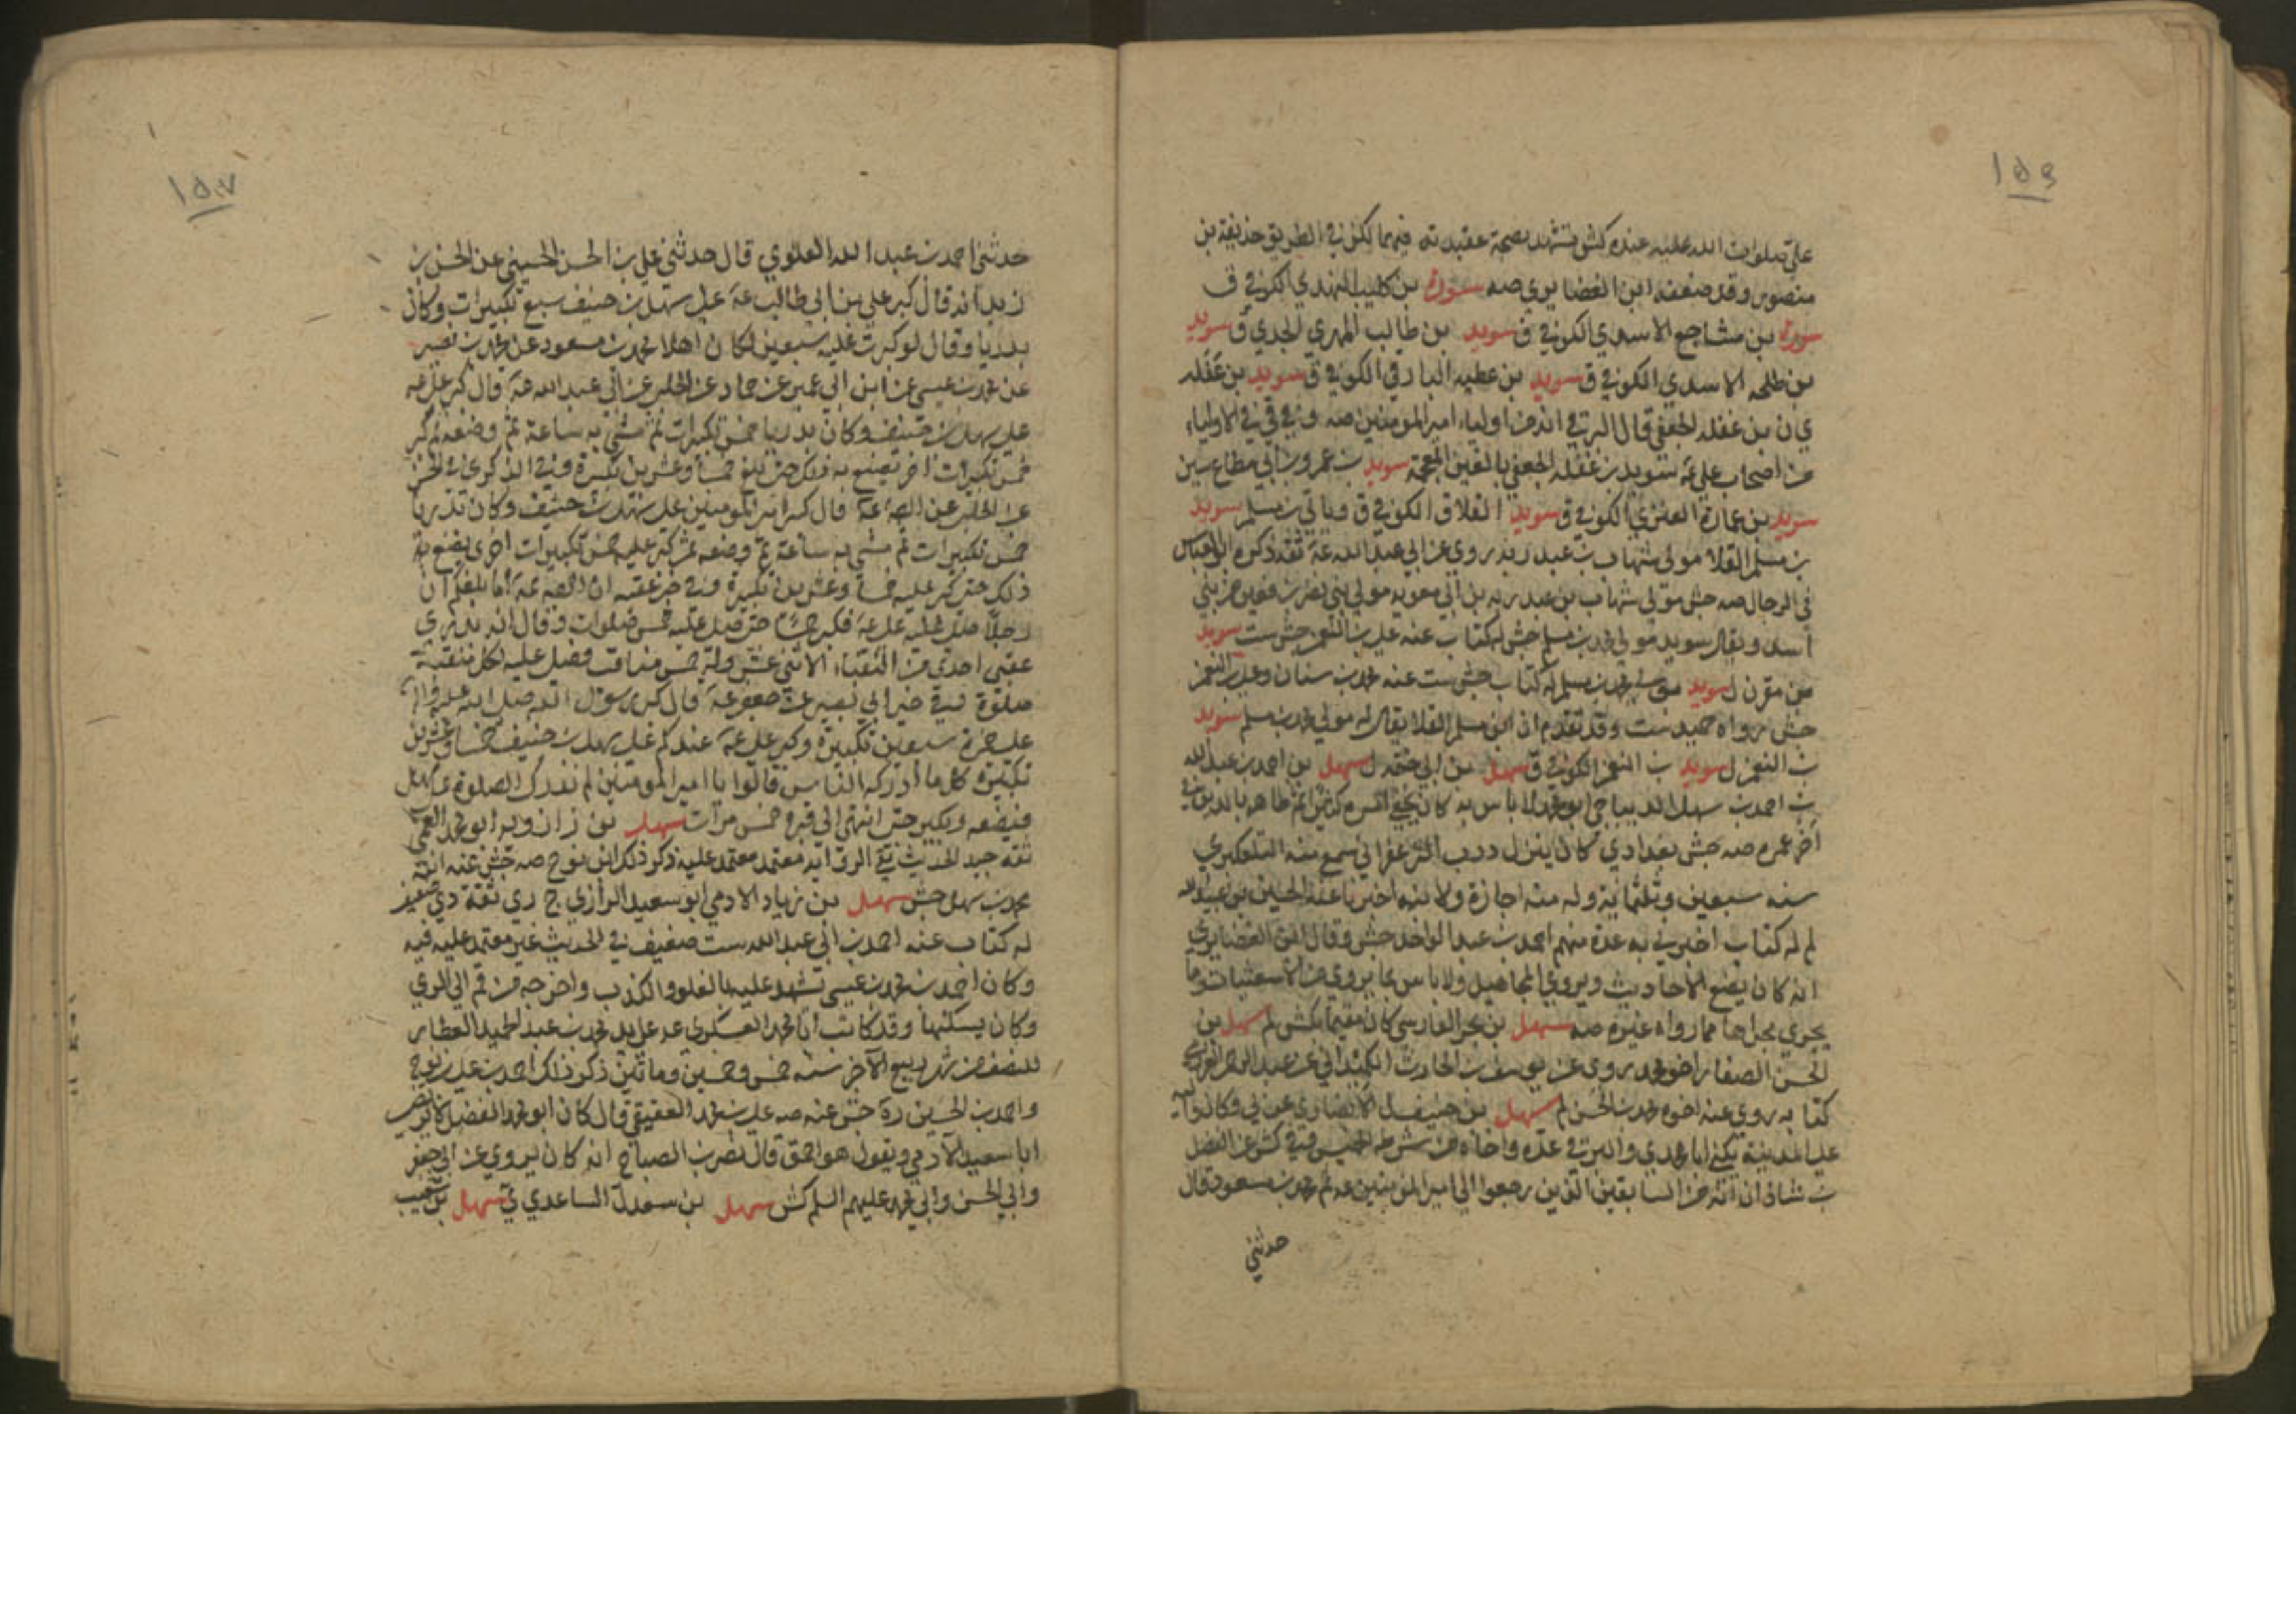 ١٥٦
علي صلوات الله عليه عنده كش فتشهد بصحة عقيدته فيهما لكن في الطريق حذيفة بن
منصور وقد ضعفه ابن الغضايري صه سورة بن كليب النهدي الكوفي ق
سورة بن مشاجع الاسدي الكوفي ق سويد بن طالب المهري الجدي ق سويد
بن طلحه الاسدي الكوفي ق سويد بن عطيه البارقي الكوفي ق سويد بن غفله
ي ن بن غفله الجعفي قال البرقي انه من اولياء امير المومنين صه وفي قي في الاولياء
من اصحاب علي عه سويد بن غفله الجعفي بالغين المعجمة سويد بن عمرو بن ابي مطاع سين
سويد بن عمارة العنزي الكوفي ق سويد القلاق الكوفي ق وياتي بن مسلم سويد
بن مسلم القلا مولى شهاب بن عبد ربه روى عن ابي عبد الله عه ثقه ذكره ابو العباس
في الرجال صه جش مولى شهاب بن عبد ربه بن ابي معويه مولى بني نصر بن قعين من بني
اسد ويقال سويد مولى محمد بن مسلم جش له كتاب عنه علي بن النعمن جش ست سويد
بن مقرن ل سويد مولى محمد بن مسلم له كتاب جش ست عنه محمد بن سنان وعلي بن النعمن
جش رواه حميد ست وقد تقدم ان ابن مسلم القلا يقال له مولى محمد بن مسلم سويد
بن النعمن ل سويد بن النعمن الكوفي ق سهل بن ابي حثمه ل سهل بن احمد بن عبد الله
بن احمد بن سهل الديباجي ابو محمد لا باس به كان يخفي امره كثيرا ثم ظاهر بالدين في
آخر عمره صه جش بغدادي كان ينزل درب الزعفراني سمع منه التلعكبري
سنه سبعين وثلثمائة وله منه اجازة ولابنه اخبرنا عنه الحسين بن عبيد الله
لم له كتاب اخبرني به عدة منهم احمد بن عبد الواحد جش وقال ابن الغضايري
انه كان يضع الاحاديث ويروي عن المجاهيل ولا باس بما يروي من الاشعثيات وما
يجري مجراها مما رواه غيره صه سهل بن بحر الفارسي كان مقيما بكش لم سهل بن
الحسن الصفار اخو محمد روى عن يوسف بن الحارث الكميداني عن عبد الرحمن العرزمي
كتابه روى عنه اخوه محمد بن الحسن لم سهل بن حنيف ل الانصاري عربي وكان واليه
على المدينة يكنى ابا محمد ي والبرقي عده واخاه من شرطة الخميس وفي كش عن الفضل
بن شاذان انه من السابقين الذين رجعوا الى امير المومنين عه ثم محمد بن مسعود قال
حدثني
١٥٧
حدثني احمد بن عبد الله العلوي قال حدثني علي بن الحسن الحسيني عن الحسن بن
زيد انه قال كبر علي بن ابي طالب عه على سهل بن حنيف سبع تكبيرات وكان
بدريا وقال لو كبرت عليه سبعين لكان اهلا محمد بن مسعود عن محمد بن نصير
عن محمد بن عيسى عن ابن ابي عمير عن حماد عن الحلبي عن ابي عبد الله عه قال كبر علي عه
على سهل بن حنيف وكان بدريا خمس تكبيرات ثم مشى به ساعة ثم وضعه ثم كبر
خمس تكبيرات اخر يصنع به ذلك حتى بلغ خمسا وعشرين تكبيرة وفي
عن الحلبي عن الصه عه قال كبر امير المومنين على سهل بن حنيف وكان بدريا
خمس تكبيرات ثم مشى به ساعة ثم وضعه ثم كبر عليه خمس تكبيرات اخرى يصنع به
ذلك حتى كبر عليه خمسا وعشرين تكبيرة وفي خبر عقبه ان الصه عه اما بلغكم ان
رجلا صلى عليه علي عه فكبر خمسا حتى صلى عليه خمس صلوات وقال انه بدري
عقبي احدي من النقباء الاثني عشر وله خمس مناقب فصلى عليه لكل منقبة
صلوة وفي خبر ابي بصير عن جعفر عه قال كبر رسول الله صلى الله عليه وآله
على حمزة سبعين تكبيرة وكبر علي عه عندكم على سهل بن حنيف خمسا وعشرين
تكبيرة كلما ادركه الناس قالوا يا امير المومنين لم ندرك الصلوة على سهل
فيضعه ويكبر حتى انتهى الى قبره خمس مرات سهل بن زاذويه ابو محمد القمي
ثقه جيد الحديث نقي الروايه معتمد معتمد عليه ذكر ذلك ابن نوح صه جش عنه ابنه
محمد بن سهل جش سهل بن زياد الادمي ابو سعيد الرازي ج ري ثقة دي ضعيف
له كتاب عنه احمد بن ابي عبد الله ست ضعيف في الحديث غير معتمد عليه فيه
وكان احمد بن محمد بن عيسى تشهد عليه بالغلو والكذب واخرجه من قم الى الري
وكان يسكنها وقد كاتب ابا محمد العسكري عه على يد محمد بن عبد الحميد العطار
للنصف من شهر ربيع الآخر سنه خمس وخمسين ومائتين ذكر ذلك احمد بن علي بن نوح
واحمد بن الحسين ره جش عنه صه علي بن محمد القتيبي قال كان ابو محمد الفضل لا يرتضي
ابا سعيد الآدمي ويقول هو احمق قال نصر بن الصباح انه كان يروي عن ابي جعفر
وابي الحسن وابي محمد عليهم السلم كش سهل بن سعد ل الساعدي ي سهل بن شعيب